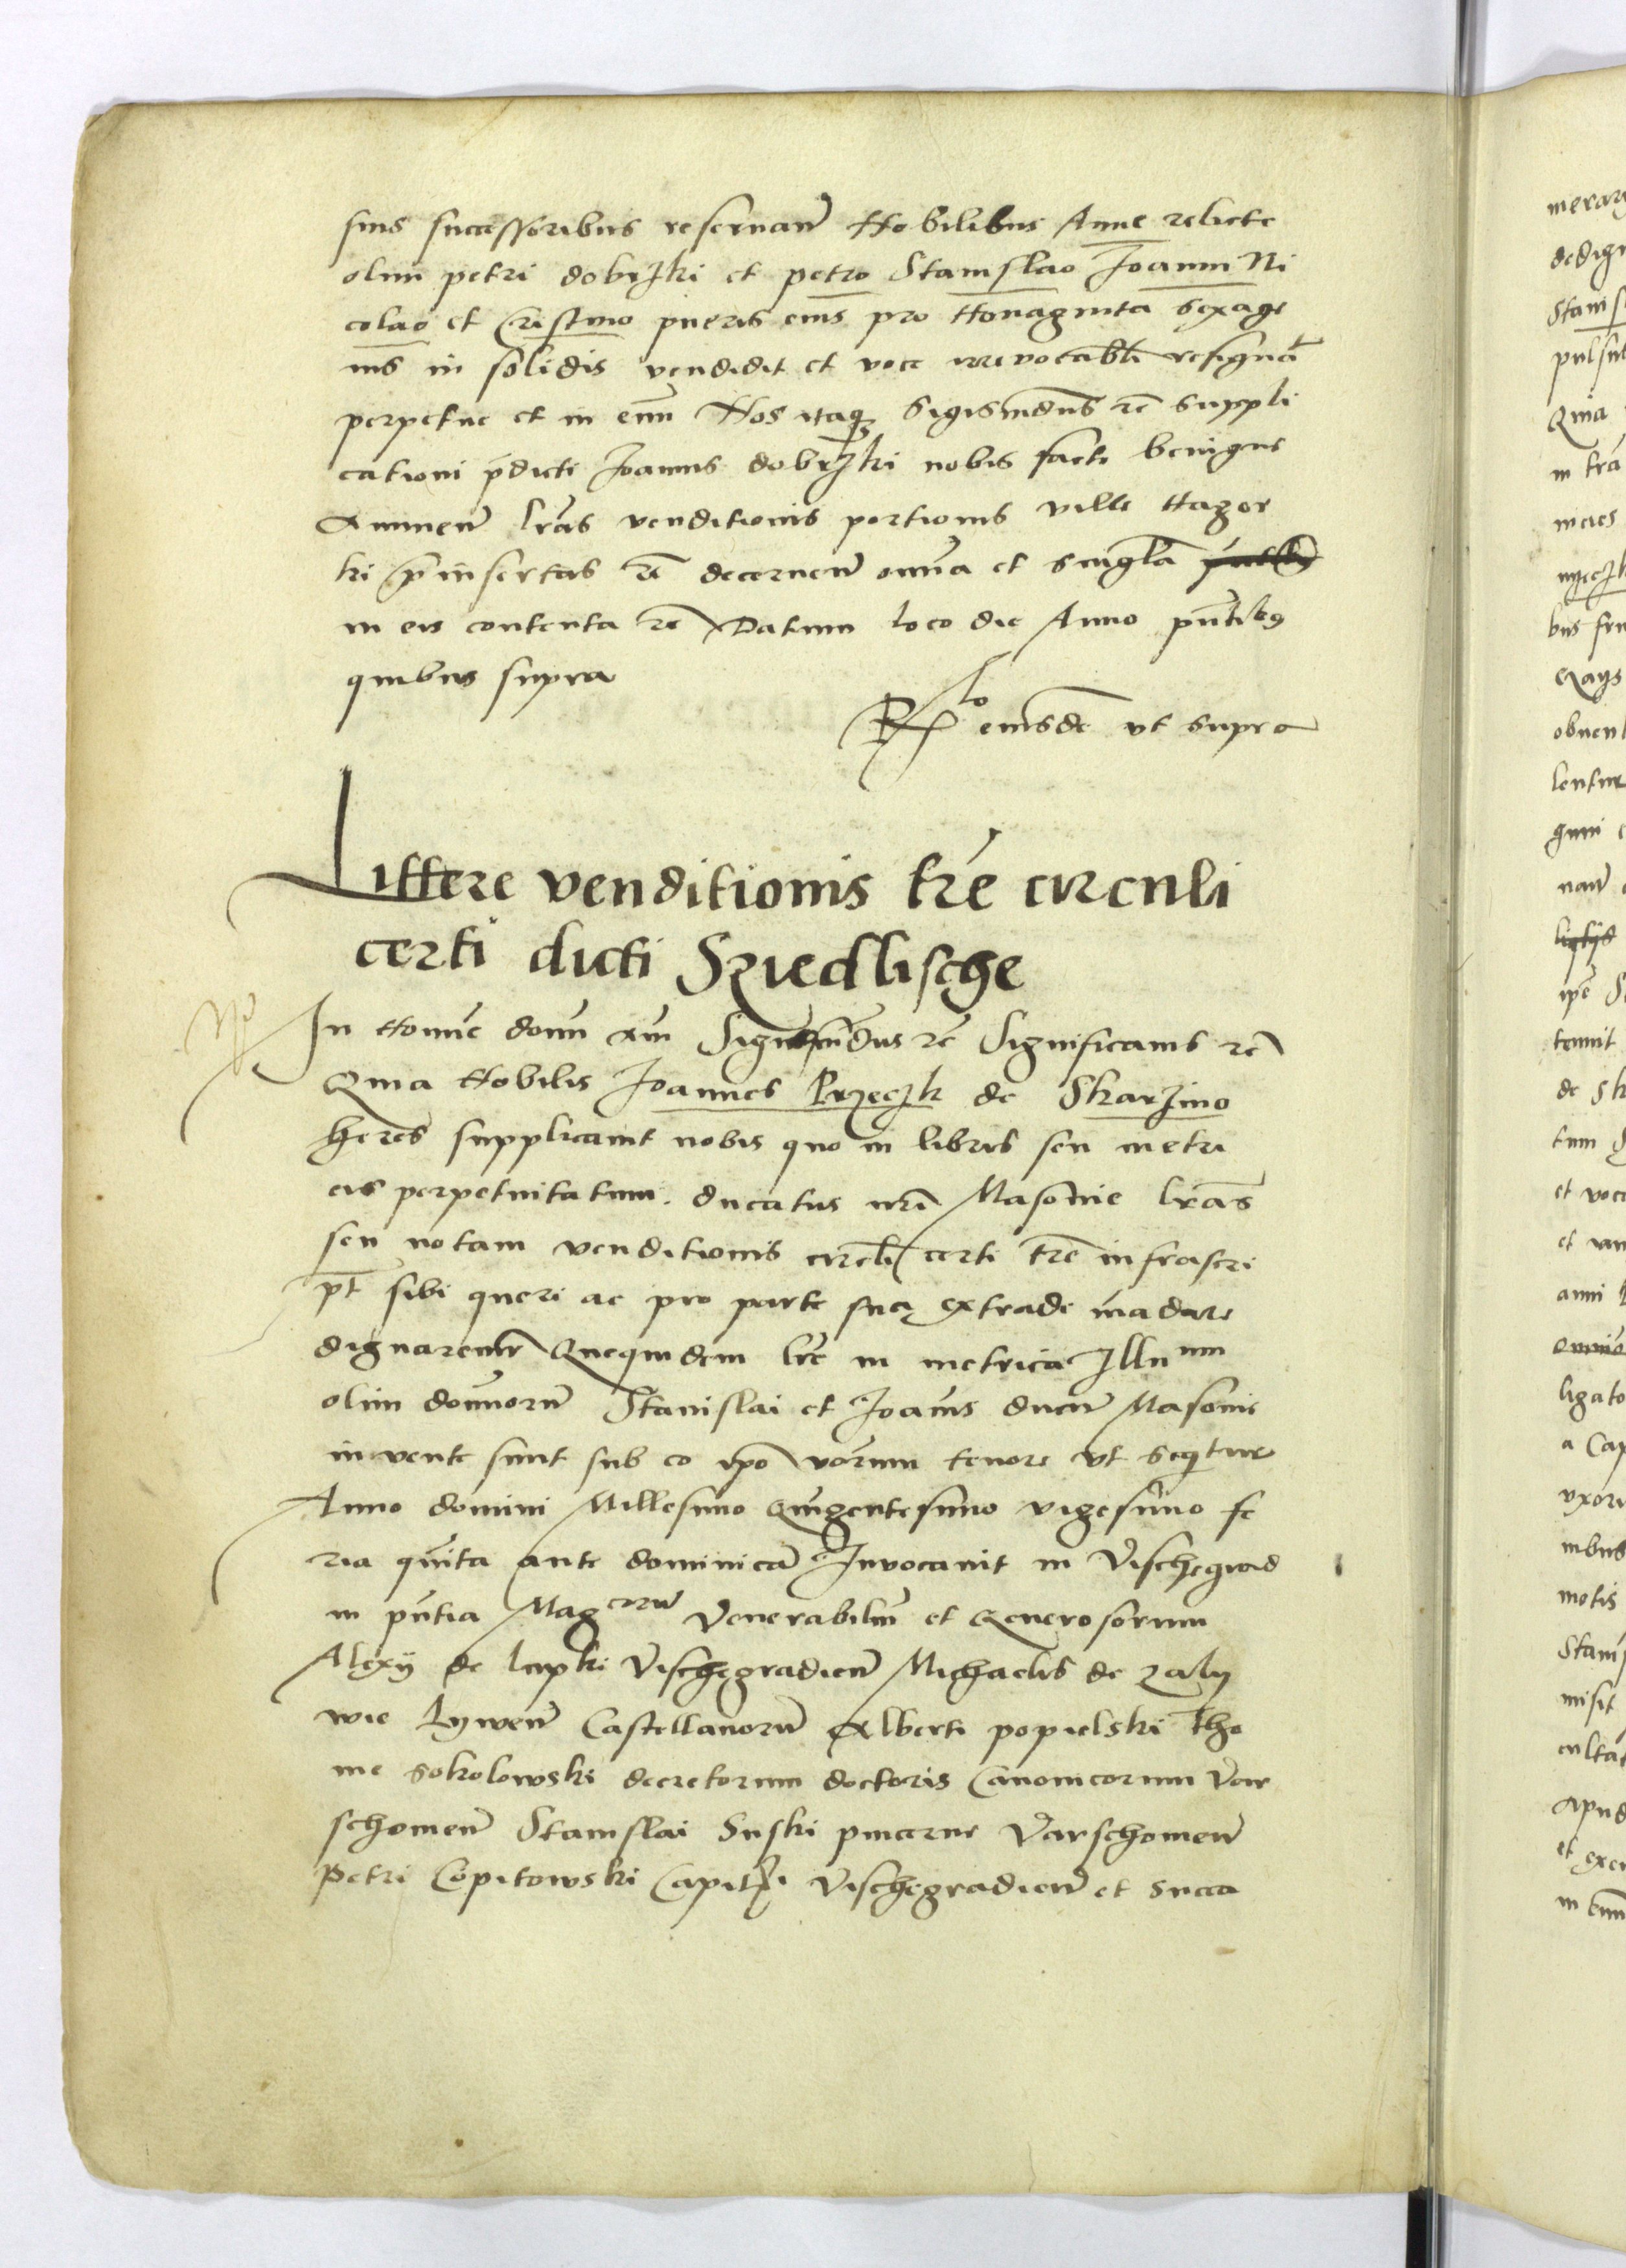 suis successoribus reservan̄ Nobilibus Anne relicte
olim petri dobrzki et petro Stanislao Joanni Ni
colao et Cristino pueris eius pro Nonaginta sexage
nis in solidis vendidit et voce irrevocabl̄i resignāt
perpetue et in eum̄ Nos itaqꝫ Sigismūdus rē suppli
cationi p̄dicti Joannis dobrzki nobis facte benigne
Annuen̄ lrās venditionis portionis ville Nagor
ki p̄insertas rē decernen̄ om̄ia et singl̄a
in eis contenta rē Datum loco die Anno pn̄tibꝫ
quibus supra
Rlo eiusdē ut supra
Littere venditionis trē circuli
certi dicti Sziedlische
In Nomīe domi xpi Sigismūdus rē Significamus rē
Quia Nobilis Joannes Przeczk de Skarzino
heres supplicavit nobis quo in libris seu metri
cis perpetuitatum ducatus nri Masovie lrās
seu notam venditionis circl̄i certi trē infrascri
pt̄ sibi queri ac pro parte sua extrade mādare
dignaremr̄ Quequidem lrē in metrica Illum
olim domīorū Stanislai et Joān̄is ducū Masovie
invente sunt sub eo ip̄o verum tenore ut seqitur
Anno domini Millesimo quīgentesimo vigesimo fe
ria quīta ante dominicā Invocavit in Vischegrad
in pn̄tia Magcorū Venerabiliū et Generosorum
Alexy de lupki Vischegradien̄ Michaelis de zaly
wie Lywen̄ Castellanorū Alberti popielski Tho
me Sokolowski decretorum doctoris Canonicorum Var
schovien̄ Stanislai Suski pincerne Varschovien̄
Petri Copitowski Capitei Vischegradien̄ et Succa